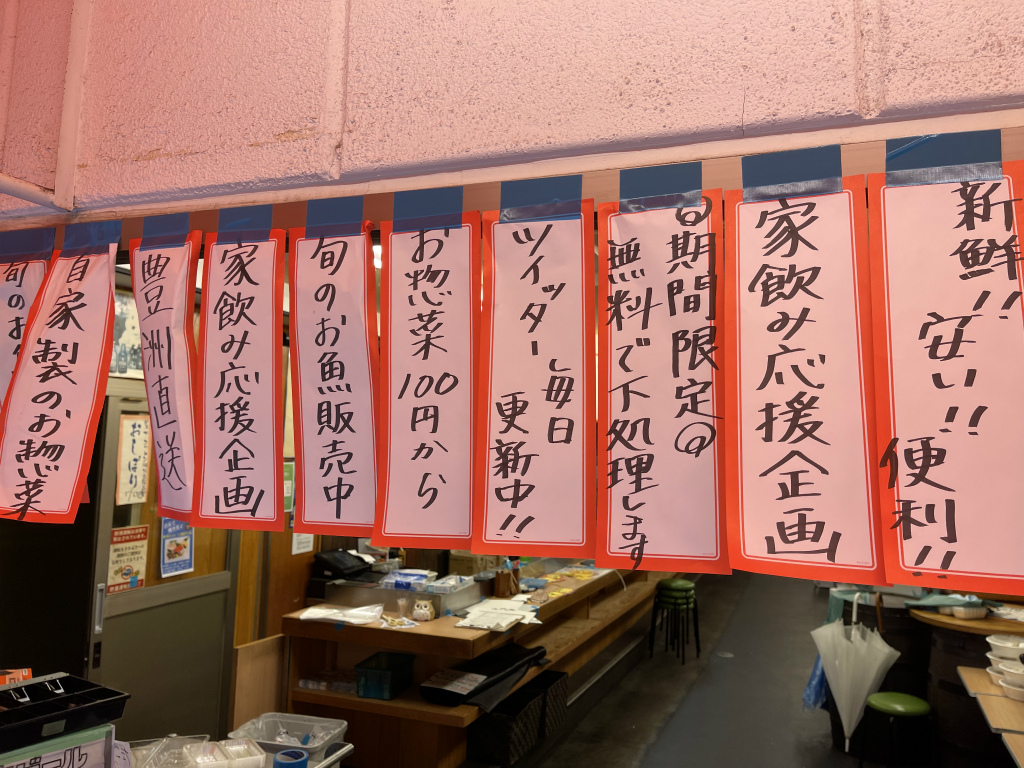 新鮮!!
安い!!
便利!!
家飲み応援企画
◎期間限定◎
無料で下処理します
ツイッター毎日
更新中!!
お惣菜100円から
旬のお魚販売中
家飲み応援企画
豊洲直送
自家製のお惣菜
旬のお
おしぼり